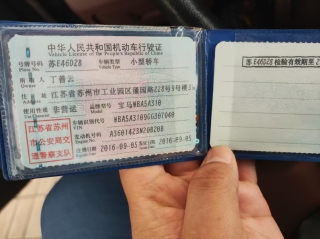 中华人民共和国机动车行驶证
Vehicle License of the People's Republic of China
号牌号码 苏E46DZ8 车辆类型 小型轿车
Plate No. Vehicle Type
所有人 丁善云
Owner
住址 江苏省苏州市工业园区蓬园路228号9幢
Address
使用性质 非营运 品牌型号 宝马WBA5A310
江苏省苏州
市公安局交
通警察支队
车辆识别代号 WBA5A3109GG301000
VIN
发动机号码 A3601423N20B20B
注册日期 2016-09-05 发证日期 2016-09-05
苏E46DZ8 检验有效期至2